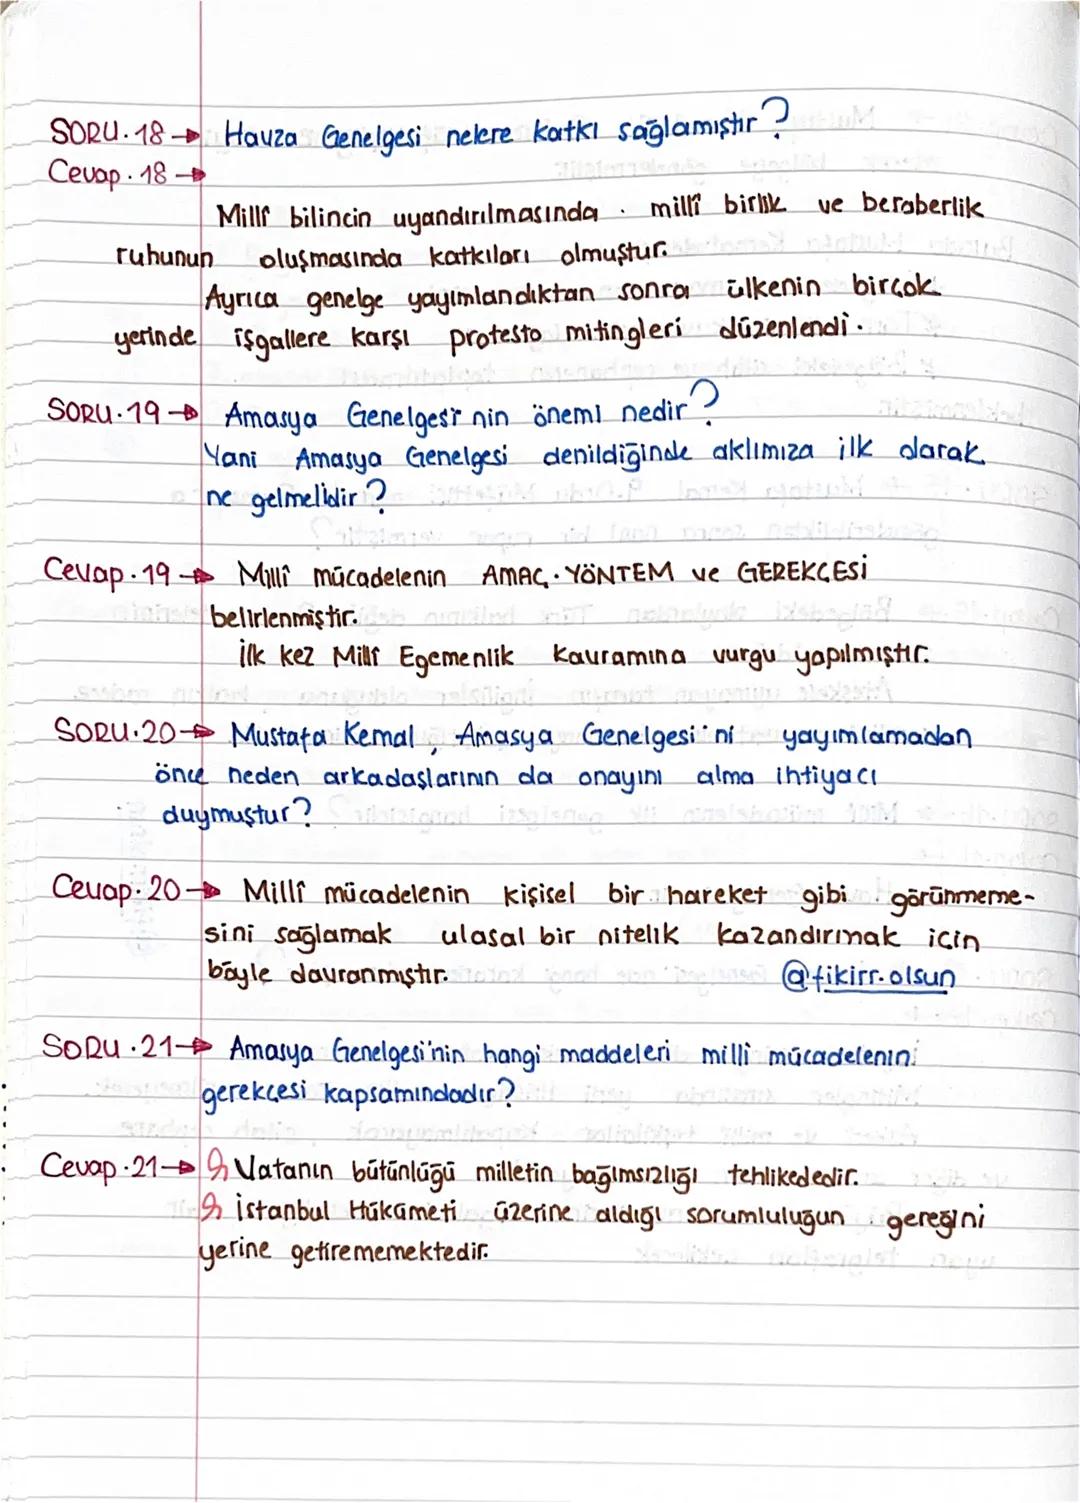 SORU.18 → Havza Genelgesi nelere katkı sağlamıştır?
Cevap.18 →
Millî bilincin uyandırılmasında . millî birlik ve beraberlik
ruhunun oluşmasında katkıları olmuştur.
Ayrıca genelge yayımlandıktan sonra ülkenin birçok
yerinde işgallere karşı protesto mitingleri düzenlendi.
SORU.19 → Amasya Genelgesi nin önemi nedir?
Yani Amasya Genelgesi denildiğinde aklımıza ilk olarak
ne gelmelidir?
Cevap.19 → Millî mücadelenin AMAÇ.YÖNTEM ve GEREKÇESİ
belirlenmiştir.
İlk kez Millî Egemenlik kavramına vurgu yapılmıştır.
SORU.20 → Mustafa Kemal, Amasya Genelgesi'ni yayımlamadan
önce neden arkadaşlarının da onayını alma ihtiyacı
duymuştur?
Cevap.20 → Millî mücadelenin kişisel bir hareket gibi görünmeme-
sini sağlamak ulasal bir nitelik kazandırmak için
böyle davranmıştır.
@fikirr.olsun
SORU.21 → Amasya Genelgesi'nin hangi maddeleri milli mücadelenin
gerekçesi kapsamındadır?
Cevap.21 → Vatanın bütünlüğü milletin bağımsızlığı tehlikededir.
İstanbul Hükümeti üzerine aldığı sorumluluğun gereğini
yerine getirememektedir.